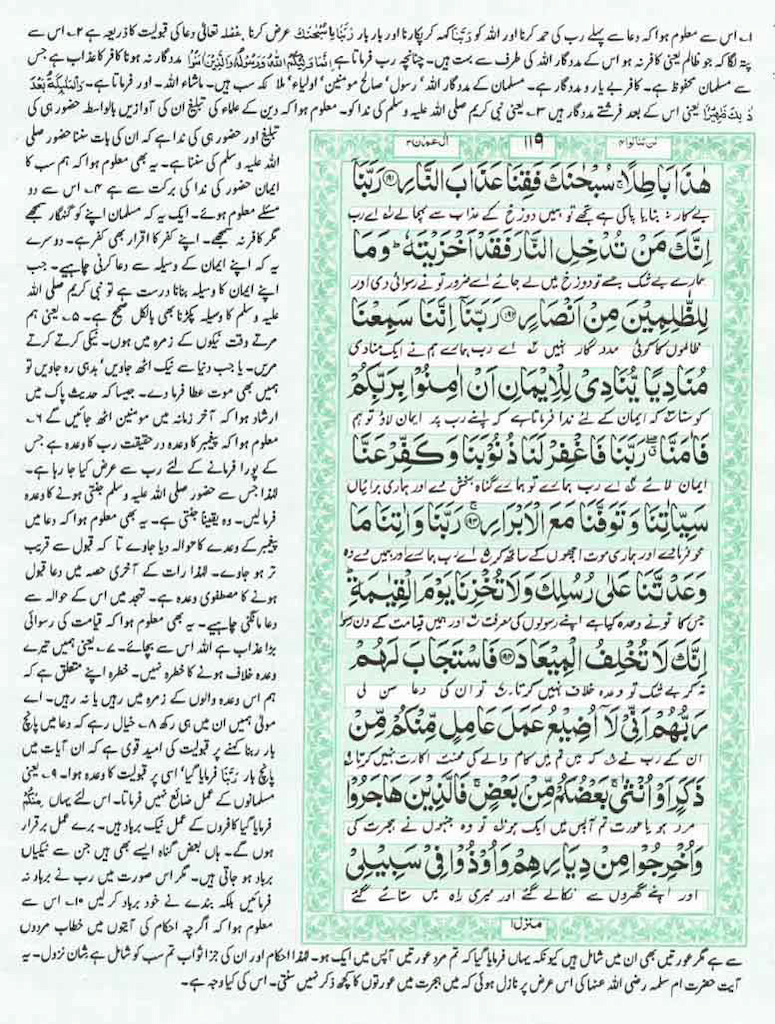 ۱۔ اس سے معلوم ہوا کہ دعا سے پہلے رب کی حمد کرنا اور اللہ کو رَبَّنَا کہہ کر پکارنا اور بار بار رَبَّنَا یا سُبْحٰنَكَ عرض کرنا۔ بفضلہ تعالیٰ دعا کی قبولیت کا ذریعہ ہے ۲۔ اس سے
پتہ لگا کہ جو ظالم یعنی کافر نہ ہو اس کے مددگار اللہ کی طرف سے بہت ہیں۔ چنانچہ رب فرماتا ہے اِنَّمَا وَلِیُّكُمُ اللّٰهُ وَرَسُوْلُهٗ وَالَّذِیْنَ اٰمَنُوْا مددگار نہ ہونا کافر کا عذاب ہے جس
سے مسلمان محفوظ ہے۔ کافر بے یار و مددگار ہے۔ مسلمان کے مددگار اللہ' رسول' صالح مومنین' اولیاء' ملائکہ سب ہیں۔ ماشاء اللہ۔ اور فرماتا ہے۔ وَالْمَلٰٓئِكَةُ بَعْدَ
ذٰلِكَ ظَهِیْرٌ یعنی اس کے بعد فرشتے مددگار ہیں ۳۔ یعنی نبی کریم صلی اللہ علیہ وسلم کی ندا کو۔ معلوم ہوا کہ دین کے علماء کی تبلیغ ان کی آوازیں بالواسطہ حضور ہی کی
لن تنالوا۴ ۱۱۹ اٰل عمران۳
هٰذَا بَاطِلًا ۚ سُبْحٰنَكَ فَقِنَا عَذَابَ النَّارِ ﴿۱۹۱﴾ رَبَّنَاۤ
بے کار نہ بنایا پاکی ہے تجھے تو ہمیں دوزخ کے عذاب سے بچا لے اے رب
اِنَّكَ مَنْ تُدْخِلِ النَّارَ فَقَدْ اَخْزَیْتَهٗ ؕ وَمَا
ہمارے بے شک جسے تو دوزخ میں لے جائے اسے ضرور تو نے رسوائی دی اور
لِلظّٰلِمِیْنَ مِنْ اَنْصَارٍ ﴿۱۹۲﴾ رَبَّنَاۤ اِنَّنَا سَمِعْنَا
ظالموں کا کوئی مددگار نہیں اے رب ہمارے ہم نے ایک منادی
مُنَادِیًا یُّنَادِیْ لِلْاِیْمَانِ اَنْ اٰمِنُوْا بِرَبِّكُمْ
کو سنا کہ ایمان کے لئے ندا فرماتا ہے کہ اپنے رب پر ایمان لاؤ تو ہم
فَاٰمَنَّا ۖ رَبَّنَا فَاغْفِرْ لَنَا ذُنُوْبَنَا وَكَفِّرْ عَنَّا
ایمان لائے اے رب ہمارے تو ہمارے گناہ بخش دے اور ہماری برائیاں
سَیِّاٰتِنَا وَتَوَفَّنَا مَعَ الْاَبْرَارِ ﴿۱۹۳﴾ رَبَّنَا وَاٰتِنَا مَا
محو فرما دے اور ہماری موت اچھوں کے ساتھ کر اے رب ہمارے اور ہمیں دے وہ
وَعَدْتَّنَا عَلٰی رُسُلِكَ وَلَا تُخْزِنَا یَوْمَ الْقِیٰمَةِ ؕ
جس کا تو نے وعدہ کیا ہے اپنے رسولوں کی معرفت اور ہمیں قیامت کے دن رسوا
اِنَّكَ لَا تُخْلِفُ الْمِیْعَادَ ﴿۱۹۴﴾ فَاسْتَجَابَ لَهُمْ
نہ کر بے شک تو وعدہ خلاف نہیں کرتا تو ان کی دعا سن لی
رَبُّهُمْ اَنِّیْ لَاۤ اُضِیْعُ عَمَلَ عَامِلٍ مِّنْكُمْ مِّنْ
ان کے رب نے کہ میں تم میں کام والے کی محنت اکارت نہیں کرتا
ذَكَرٍ اَوْ اُنْثٰی ۚ بَعْضُكُمْ مِّنْۢ بَعْضٍ ۚ فَالَّذِیْنَ هَاجَرُوْا
مرد ہو یا عورت تم آپس میں ایک ہو تو وہ جنہوں نے ہجرت کی
وَاُخْرِجُوْا مِنْ دِیَارِهِمْ وَاُوْذُوْا فِیْ سَبِیْلِیْ
اور اپنے گھروں سے نکالے گئے اور میری راہ میں ستائے گئے
منزل۱
تبلیغ اور حضور ہی کی ندا ہے کہ ان کی بات سننا حضور صلی
اللہ علیہ وسلم کی سننا ہے۔ یہ بھی معلوم ہوا کہ ہم سب کا
ایمان حضور کی ندا کی برکت سے ہے ۴۔ اس سے دو
مسئلے معلوم ہوئے۔ ایک یہ کہ مسلمان اپنے کو گنہگار سمجھے
مگر کافر نہ سمجھے۔ اپنے کفر کا اقرار بھی کفر ہے۔ دوسرے
یہ کہ اپنے ایمان کے وسیلہ سے دعا کرنی چاہیے۔ جب
اپنے ایمان کا وسیلہ بنانا درست ہے تو نبی کریم صلی اللہ
علیہ وسلم کا وسیلہ پکڑنا بھی بالکل صحیح ہے۔ ۵۔ یعنی ہم
مرتے وقت نیکوں کے زمرہ میں ہوں۔ نیکی کرتے کرتے
مریں۔ یا جب دنیا سے نیک اٹھ جاویں' بد ہی رہ جاویں تو
ہمیں بھی موت عطا فرما دے۔ جیسا کہ حدیث پاک میں
ارشاد ہوا کہ آخر زمانہ میں مومنین اٹھ جائیں گے ۶۔
معلوم ہوا کہ پیغمبر کا وعدہ درحقیقت رب کا وعدہ ہے جس
کے پورا فرمانے کے لئے رب سے عرض کیا جا رہا ہے۔
لہٰذا جس سے حضور صلی اللہ علیہ وسلم جنتی ہونے کا وعدہ
فرمالیں۔ وہ یقیناً جنتی ہے۔ یہ بھی معلوم ہوا کہ دعا میں
پیغمبر کے وعدے کا حوالہ دیا جاوے تا کہ قبول سے قریب
تر ہو جاوے۔ لہٰذا رات کے آخری حصہ میں دعا قبول
ہونے کا مصطفوی وعدہ ہے۔ تہجد میں اس کے حوالہ سے
دعا مانگنی چاہیے۔ یہ بھی معلوم ہوا کہ قیامت کی رسوائی
بڑا عذاب ہے اللہ اس سے بچائے۔ ۷۔ یعنی ہمیں تیرے
وعدہ خلاف ہونے کا خطرہ نہیں۔ خطرہ اپنے متعلق ہے کہ
ہم اس وعدہ والوں کے زمرہ میں رہیں یا نہ رہیں۔ اے
مولیٰ ہمیں ان میں ہی رکھ ۸۔ خیال رہے کہ دعا میں پانچ
بار ربنا کہنے پر قبولیت کی امید قوی ہے کہ ان آیات میں
پانچ بار رَبَّنَا فرمایا گیا' اسی پر قبولیت کا وعدہ ہوا۔ ۹۔ یعنی
مسلمانوں کے عمل ضائع نہیں فرماتا۔ اس لئے یہاں مِنْكُمْ
فرمایا گیا کافروں کے عمل نیک برباد ہیں۔ برے عمل برقرار
ہوں گے۔ ہاں بعض گناہ ایسے بھی ہیں جن سے نیکیاں
برباد ہو جاتی ہیں۔ مگر اس صورت میں رب نے برباد نہ
فرمائیں بلکہ بندے نے خود برباد کر لیں ۱۰۔ اس سے
معلوم ہوا کہ اگرچہ احکام کی آیتوں میں خطاب مردوں
سے ہے مگر عورتیں بھی ان میں شامل ہیں کیونکہ یہاں فرمایا گیا کہ تم مرد عورتیں آپس میں ایک ہو۔ لہٰذا احکام اور ان کی جزا ثواب تم سب کو شامل ہے شان نزول۔ یہ
آیت حضرت ام سلمہ رضی اللہ عنہا کی اس عرض پر نازل ہوئی کہ میں ہجرت میں عورتوں کا کچھ ذکر نہیں سنتی۔ اس کی کیا وجہ ہے۔